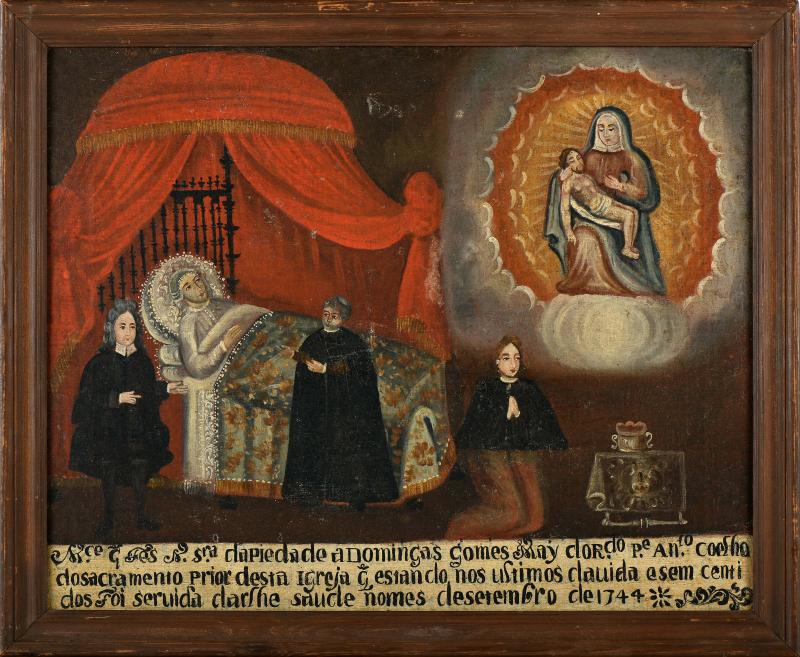 M.ce q̃ Fes N. Sr.a dapiedade aDomingas gomes May doR.do P.e An.to Coelho
dosacramento prior desta Igreja q̃ estando nos ultimos davida esem centi
dos Foi servida darlhe saude nomes desetembro de 1744